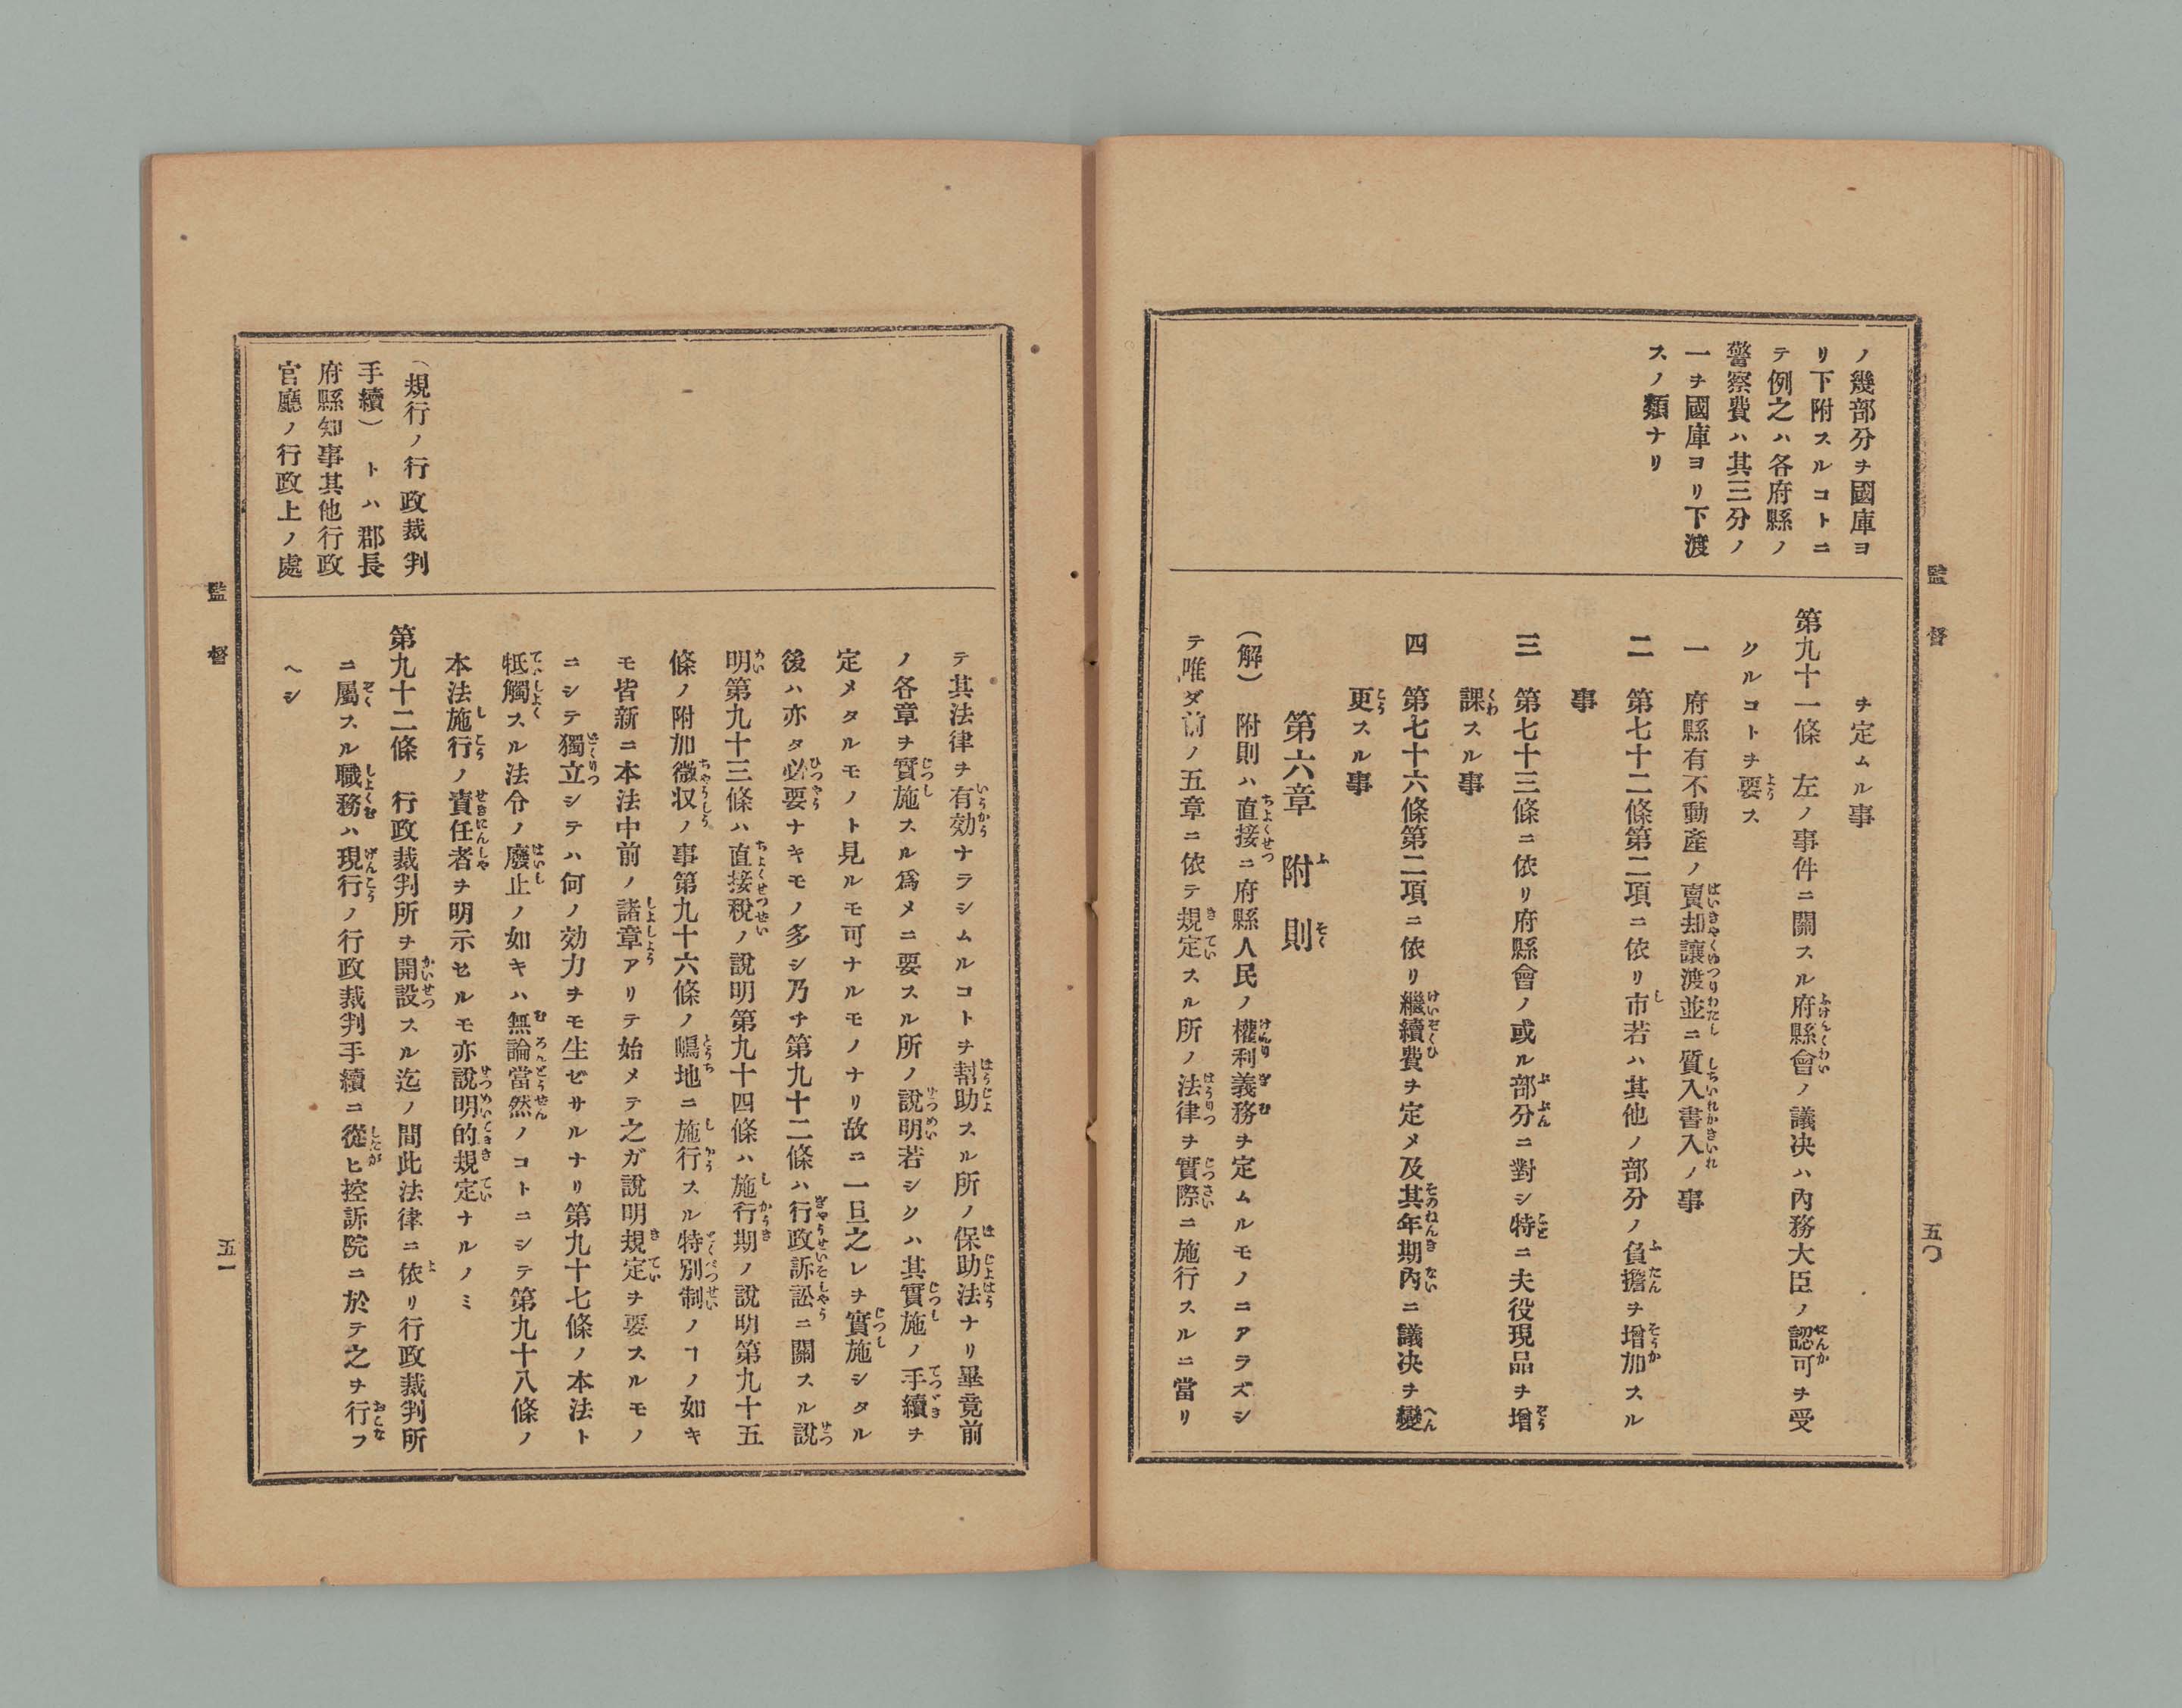 ノ幾部分ヲ國庫ヨ
リ下附スルコトニ
テ例之ハ各府縣ノ
警察費ハ其三分ノ
一ヲ國庫ヨリ下渡
スノ類ナリ
監督
五〇
ヲ定ムル事
第九十一條 左ノ事件ニ關スル府縣會ノ議决ハ內務大臣ノ認可ヲ受
クルコトヲ要ス
一 府縣有不動產ノ賣却讓渡並ニ質入書入ノ事
二 第七十二條第二項ニ依リ市若ハ其他ノ部分ノ負擔ヲ增加スル
事
三 第七十三條ニ依リ府縣會ノ或ル部分ニ對シ特ニ夫役現品ヲ增
課スル事
四 第七十六條第二項ニ依リ繼續費ヲ定メ及其年期內ニ議决ヲ變
更スル事
第六章 附則
（解） 附則ハ直接ニ府縣人民ノ權利義務ヲ定ムルモノニアラズシ
テ唯ダ前ノ五章ニ依テ規定スル所ノ法律ヲ實際ニ施行スルニ當リ
テ其法律ヲ有効ナラシムルコトヲ幇助スル所ノ保助法ナリ畢竟前
ノ各章ヲ實施スル爲メニ要スル所ノ說明若シクハ其實施ノ手續ヲ
定メタルモノト見ルモ可ナルモノナリ故ニ一旦之レヲ實施シタル
後ハ亦タ必要ナキモノ多シ乃チ第九十二條ハ行政訴訟ニ關スル說
明第九十三條ハ直接稅ノ說明第九十四條ハ施行期ノ說明第九十五
條ノ附加徵収ノ事第九十六條ノ嶋地ニ施行スル特別制ノヿノ如キ
モ皆新ニ本法中前ノ諸章アリテ始メテ之ガ說明規定ヲ要スルモノ
ニシテ獨立シテハ何ノ効力ヲモ生ゼサルナリ第九十七條ノ本法ト
牴觸スル法令ノ廢止ノ如キハ無論當然ノコトニシテ第九十八條ノ
本法施行ノ責任者ヲ明示セルモ亦說明的規定ナルノミ
第九十二條 行政裁判所ヲ開設スル迄ノ間此法律ニ依リ行政裁判所
ニ屬スル職務ハ現行ノ行政裁判手續ニ從ヒ控訴院ニ於テ之ヲ行フ
ヘシ
（規行ノ行政裁判
手續） トハ郡長
府縣知事其他行政
官廳ノ行政上ノ處
監督
五一